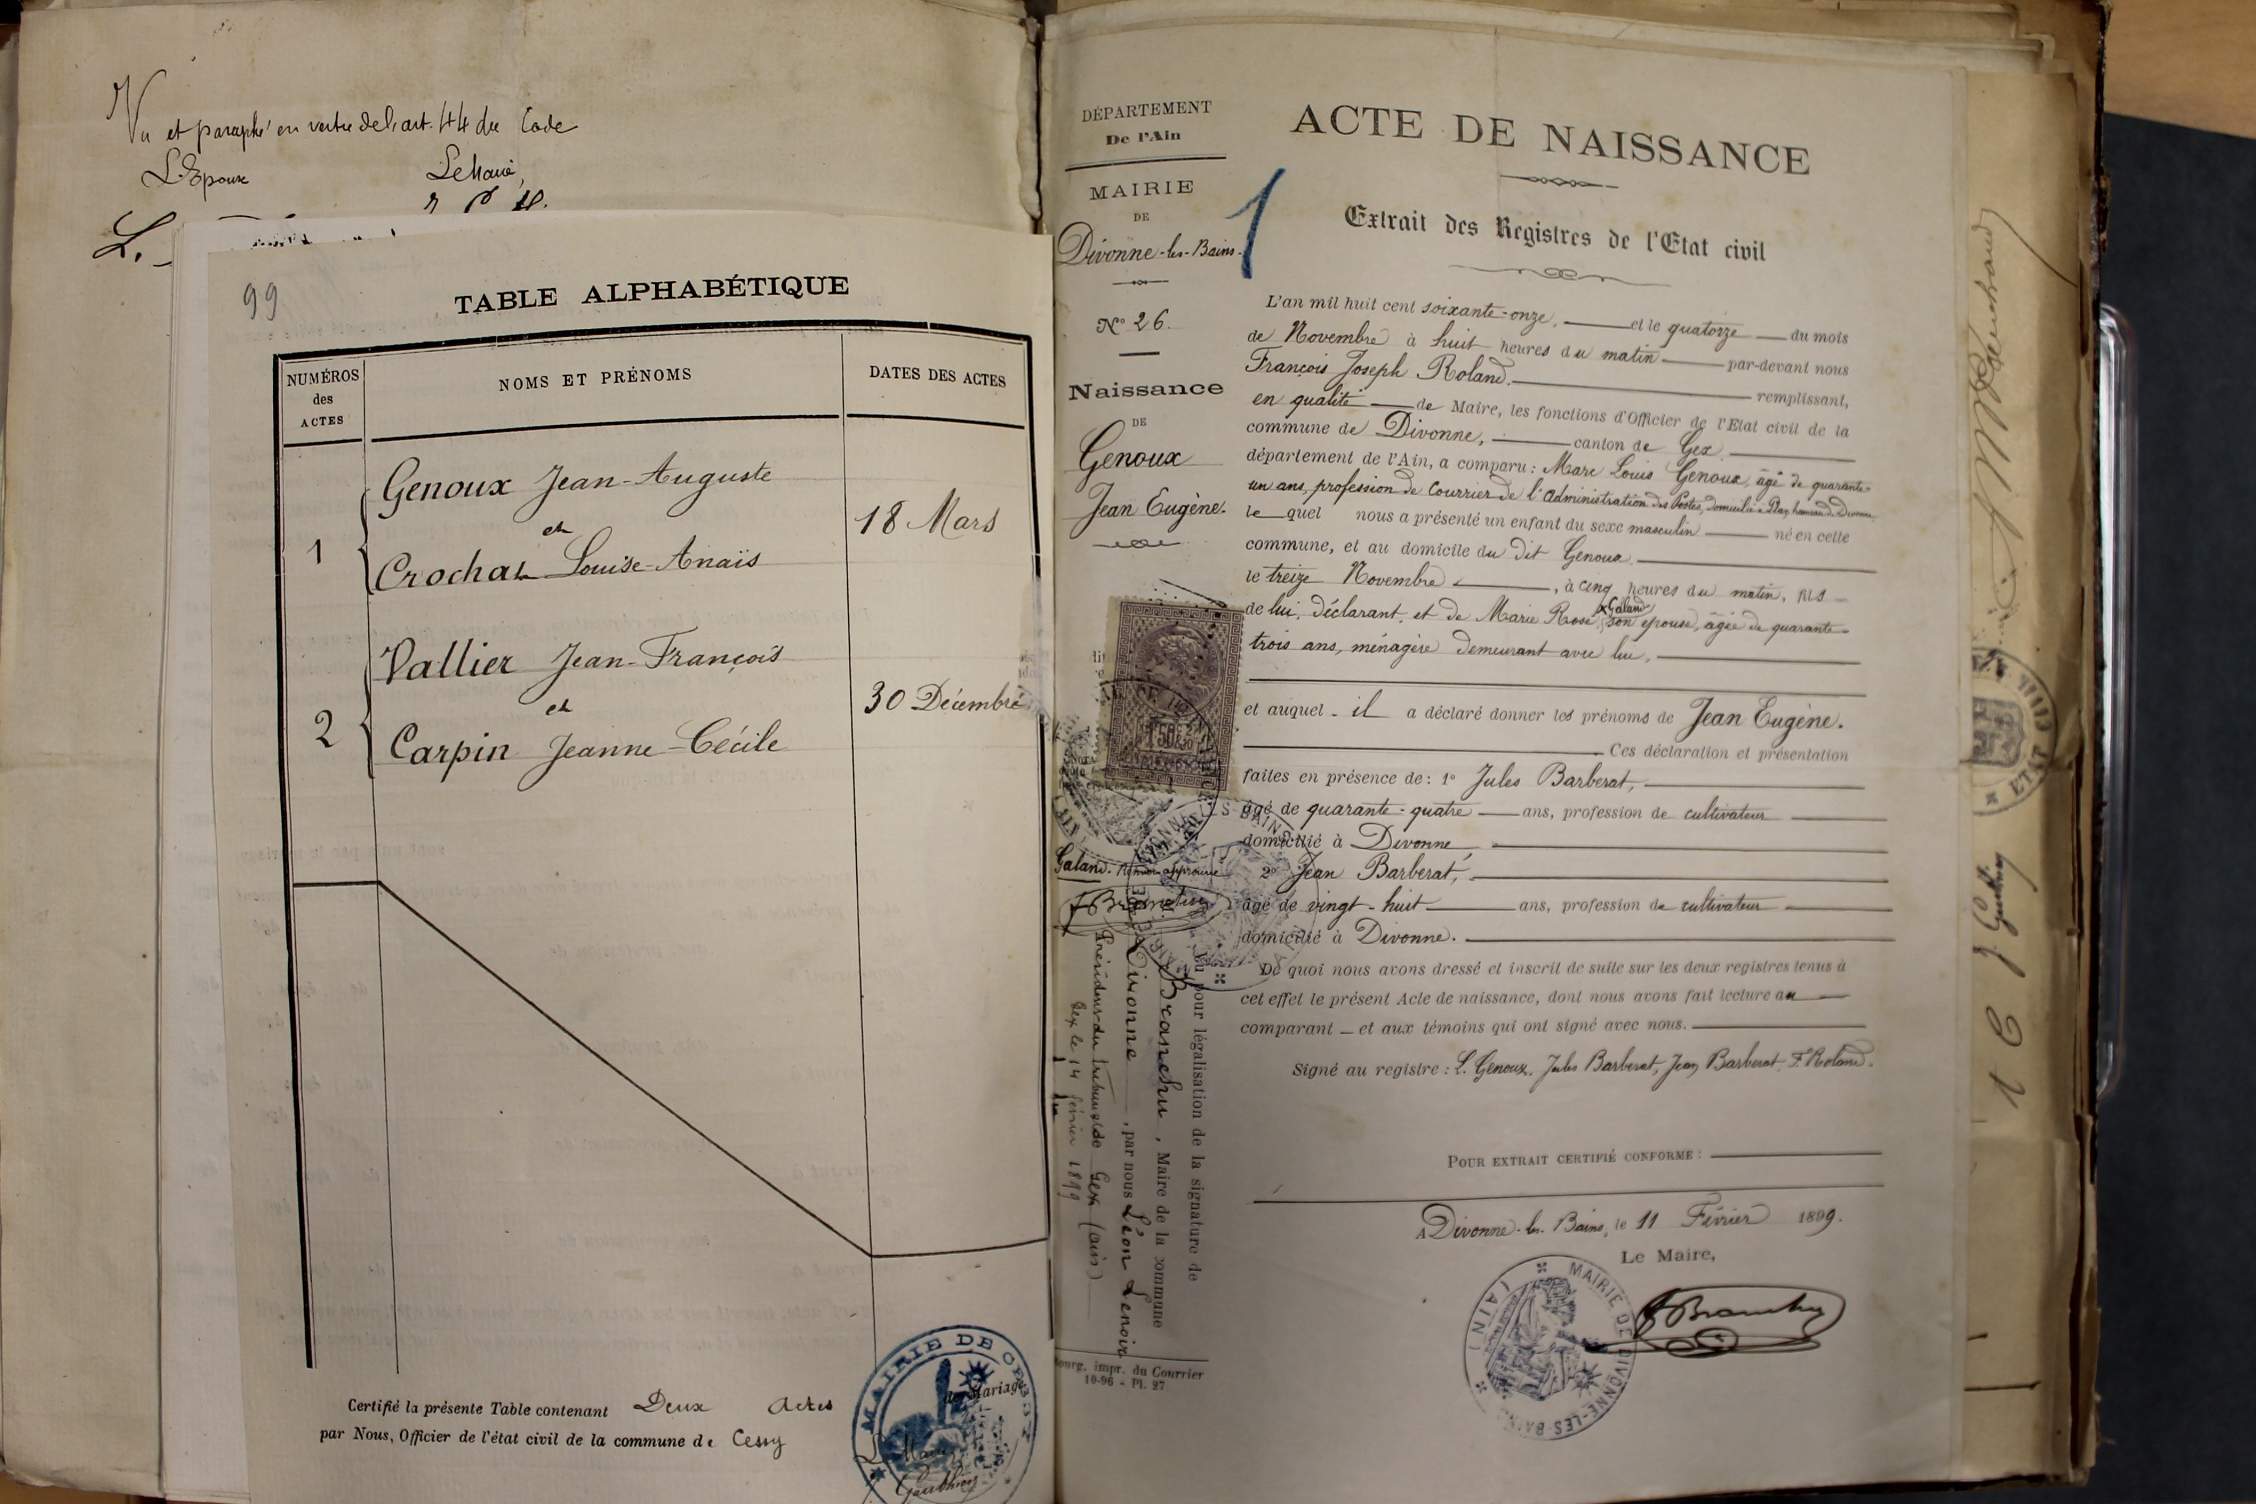 Vu et paraphé en vertu de l'art. 44 du Code
L'Epoux
Le Maire,
99
TABLE ALPHABÉTIQUE
NUMÉROS
des
ACTES
NOMS ET PRÉNOMS
DATES DES ACTES
Genoux Jean-Auguste
1
et
18 Mars
Crochat Louise-Anaïs
Vallier Jean-François
2
et
30 Décembre
Carpin Jeanne-Cécile
Certifié la présente Table contenant Deux Actes
de Mariage
par Nous, Officier de l'état civil de la commune de Cessy
MAIRIE DE CESSY
DÉPARTEMENT
De l'Ain
MAIRIE
DE
Divonne-les-Bains
N° 26.
Naissance
DE
Genoux
Jean Eugène.
1
Galand. Renvoi approuvé
Vu pour légalisation de la signature de
Branchu, Maire de la commune
Divonne, par nous Léon Lenoir
Président du tribunal de Gex (Ain)
Gex le 14 février 1899
Bourg, impr. du Courrier
10-96 - Pl. 27
ACTE DE NAISSANCE
Extrait des Registres de l'Etat civil
L'an mil huit cent soixante-onze, et le quatorze du mois
de Novembre à huit heures du matin par-devant nous
François Joseph Roland. remplissant,
en qualité de Maire, les fonctions d'Officier de l'Etat civil de la
commune de Divonne, canton de Gex.
département de l'Ain, a comparu : Marc Louis Genoux, âgé de quarante-
un ans, profession de Courrier de l'Administration des Postes, domicilié à
le quel nous a présenté un enfant du sexe masculin né en cette
commune, et au domicile du dit Genoux.
le treize Novembre, à cinq heures du matin, fils
de lui, déclarant, et de Marie Rose x Galand son épouse, âgée de quarante-
trois ans, ménagère demeurant avec lui,
et auquel il a déclaré donner les prénoms de Jean Eugène.
Ces déclaration et présentation
faites en présence de : 1° Jules Barberat,
âgé de quarante-quatre ans, profession de cultivateur
domicilié à Divonne
2° Jean Barberat,
âgé de vingt-huit ans, profession de cultivateur
domicilié à Divonne.
De quoi nous avons dressé et inscrit de suite sur les deux registres tenus à
cet effet le présent Acte de naissance, dont nous avons fait lecture au
comparant et aux témoins qui ont signé avec nous.
Signé au registre : L. Genoux, Jules Barberat, Jean Barberat, F. Roland.
POUR EXTRAIT CERTIFIÉ CONFORME :
A Divonne-les-Bains, le 11 Février 1899.
Le Maire,
MAIRIE DE DIVONNE-LES-BAINS
(AIN)
ETAT CIVIL